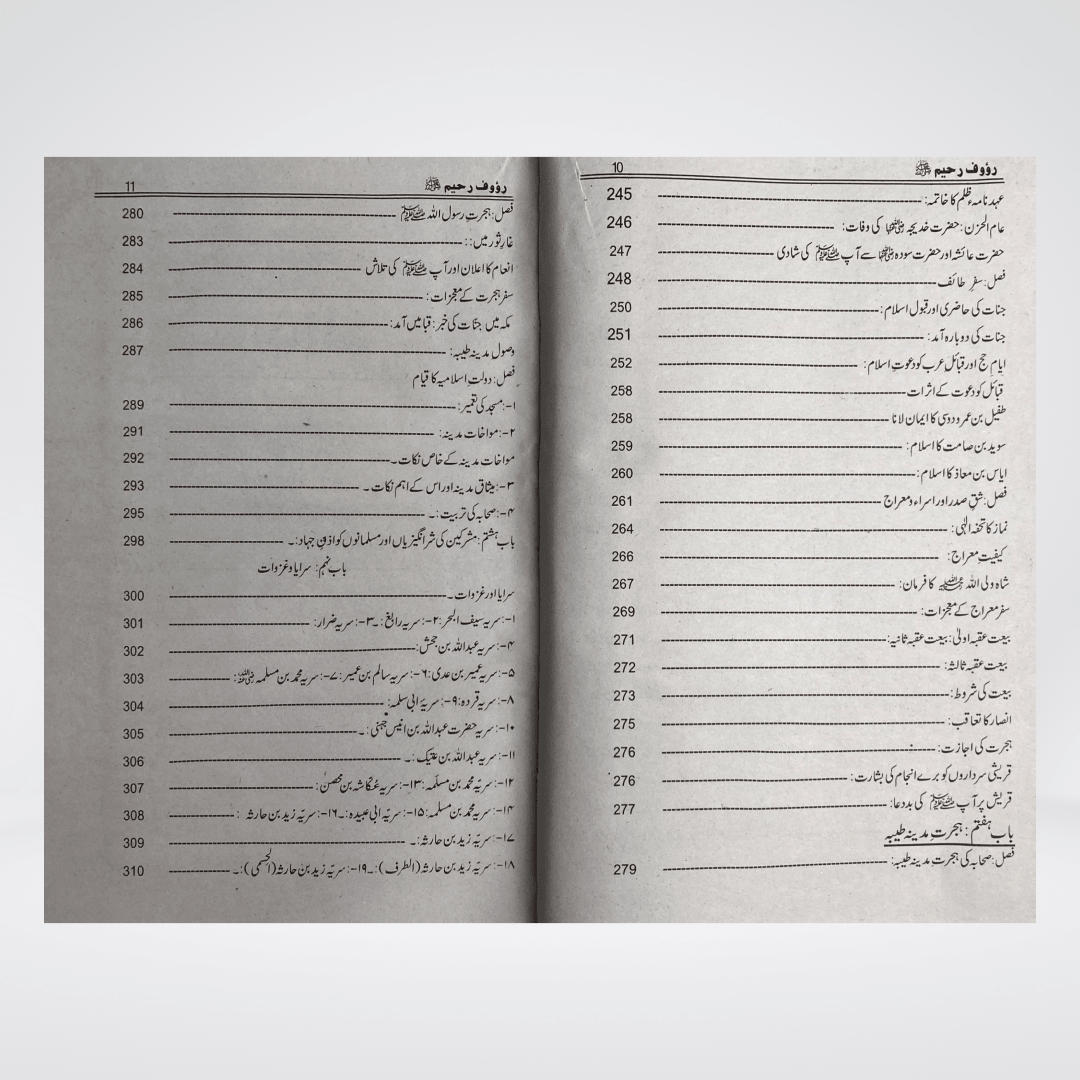 رؤوف رحیم ﷺ 10
عہد نامہء ظلم کا خاتمہ: 245
عام الحزن: حضرت خدیجہ رضی اللہ عنہا کی وفات: 246
حضرت عائشہ اور حضرت سودہ رضی اللہ عنہما سے آپ ﷺ کی شادی 247
فصل: سفرِ طائف 248
جنات کی حاضری اور قبول اسلام: 250
جنات کی دوبارہ آمد: 251
ایام حج اور قبائل عرب کو دعوتِ اسلام: 252
قبائل کو دعوت کے اثرات 258
طفیل بن عمرو دوسی کا ایمان لانا 258
سوید بن صامت کا اسلام: 259
ایاس بن معاذ کا اسلام: 260
فصل: شقِ صدر اور اسراء و معراج 261
نماز کا تحفہ الٰہی: 264
کیفیتِ معراج: 266
شاہ ولی اللہ رحمۃ اللہ علیہ کا فرمان: 267
سفر معراج کے معجزات: 269
بیعت عقبہ اولیٰ: بیعت عقبہ ثانیہ: 271
بیعت عقبہ ثالثہ: 272
بیعت کی شروط: 273
انصار کا تعاقب: 275
ہجرت کی اجازت: 276
قریشی سرداروں کو برے انجام کی بشارت: 276
قریش پر آپ ﷺ کی بددعا: 277
باب ہفتم: ہجرتِ مدینہ طیبہ
فصل: صحابہ کی ہجرتِ مدینہ طیبہ: 279
رؤوف رحیم ﷺ 11
فصل: ہجرتِ رسول اللہ ﷺ 280
غارِ ثور میں:: 283
انعام کا اعلان اور آپ ﷺ کی تلاش 284
سفر ہجرت کے معجزات: 285
مکہ میں جنّات کی خبر: قبا میں آمد: 286
وصول مدینہ طیبہ: 287
فصل: دولتِ اسلامیہ کا قیام
۱-: مسجد کی تعمیر: 289
۲-: مواخات مدینہ: 291
مواخات مدینہ کے خاص نکات۔ 292
۳-: میثاق مدینہ اور اس کے اہم نکات۔ 293
۴-: صحابہ کی تربیت:۔ 295
باب ہشتم: مشرکین کی شر انگیزیاں اور مسلمانوں کو اذنِ جہاد:۔ 298
باب نہم: سرایا و غزوات
سرایا اور غزوات۔ 300
۱-: سریہ سیف البحر: ۲-: سریہ رابغ:۔ ۳-: سریہ ضرار: 301
۴-: سریہ عبداللہ بن جحش: 302
۵-: سریہ عمیر بن عدی: ۶-: سریہ سالم بن عمیر: ۷-: سریہ محمد بن مسلمہ رضی اللہ عنہ: 303
۸-: سریہ قردہ: ۹-: سریہ ابی سلمہ: 304
۱۰-: سریہ حضرت عبداللہ بن انیس جہنی:۔ 305
۱۱-: سریہ عبداللہ بن عتیک:۔ 306
۱۲-: سریّہ محمد بن مسلّمہ: ۱۳-: سریہ عکاشہ بن محصن: 307
۱۴-: سریہ محمد بن مسلمہ: ۱۵-: سریّہ ابی عبیدہ:۔ ۱۶-: سریّہ زید بن حارثہ: 308
۱۷-: سریّہ زید بن حارثہ:۔ 309
۱۸-: سریّہ زید بن حارثہ (الطرف):۔ ۱۹-: سریّہ زید بن حارثہ (الحسمی):۔ 310